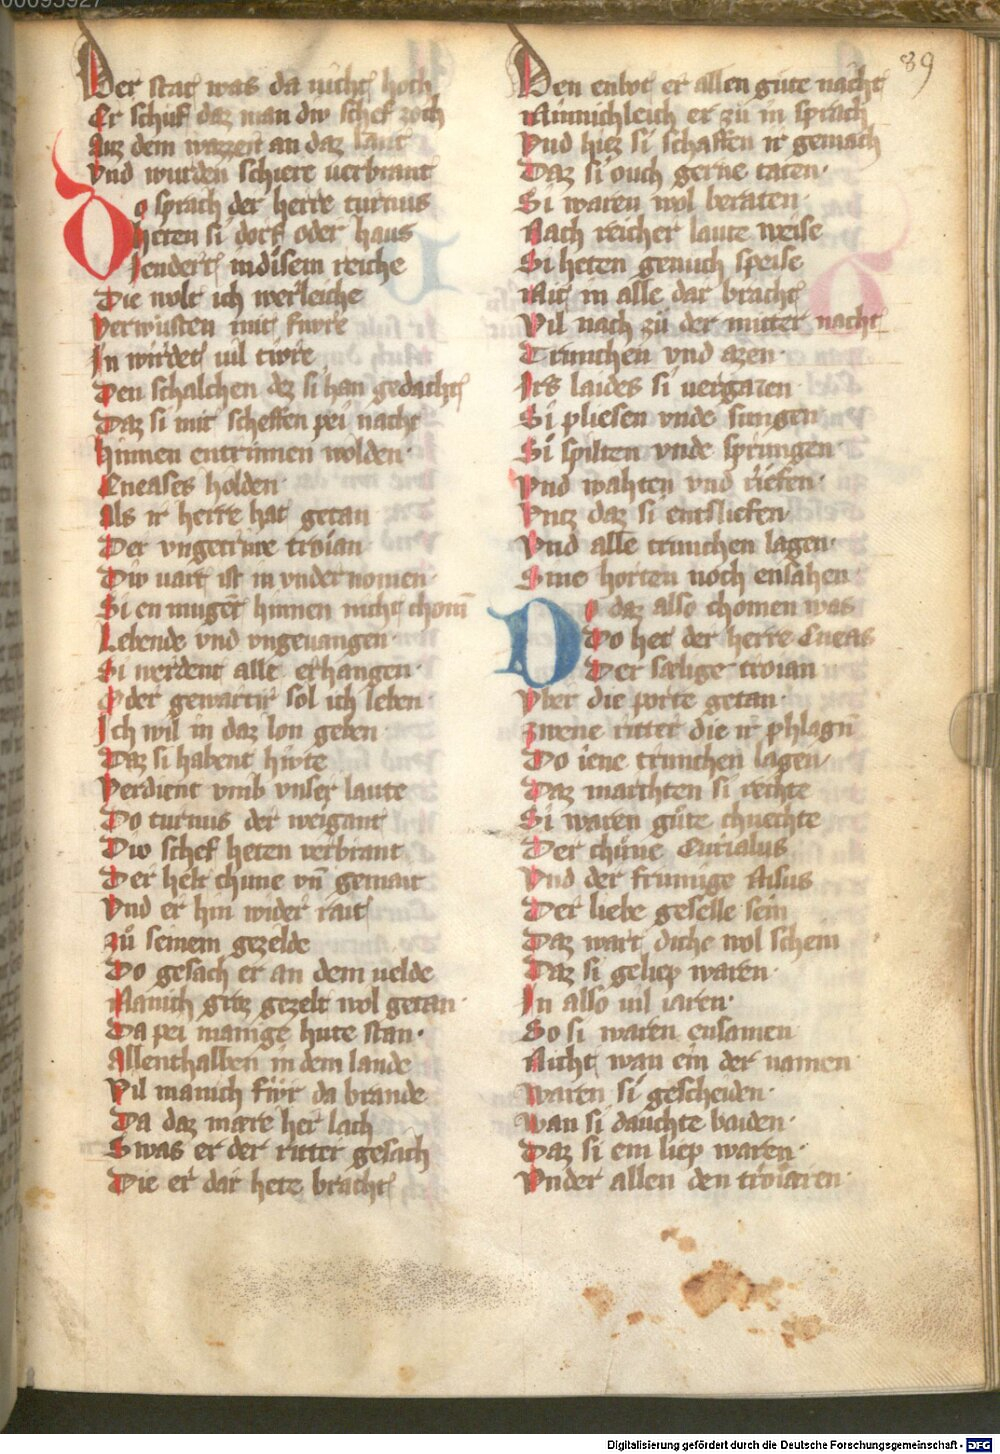 89
Der stat was da nicht hoch
Er schuf daz man div schef zoch
Auz dem wazzer an daz lant
Vnd wurden schiere verbrant
Do sprach der herre turnus
heten si dorf oder haus
Jendert in disem reiche
Die wolt ich werleiche
Verwusten mit fiwre
In wirdet vil tiwre
Den schalchen dez si han gedacht
Daz si mit scheffen pei nacht
Hinnen entrinnen wolden
Eneases holden
Als ir herre hat getan
Der vngetriwe troian
Div vart ist in vnder nomen
Si en mugen hinnen nicht chom̄
Lebende vnd vngeuangen
Si werdent alle erhangen
Oder gemartir sol ich leben
Ich wil in daz lon geben
Daz si habent hivte
Verdient vmb vnser laute
Do turnus der weigant
Div schef heten verbrant
Der helt chune vn̄ gemait
Vnd er hin wider rait
zů seinem gezelde
Do gesach er an dem velde
Manich groz gezelt wol getan
Da pei manige hute stan
Allenthalben in dem lande
Vil manich fiwr da brande
Da daz mære her lach
Swas er der ritter gesach
Die er dar hete bracht
Den enbot er allen gůte nacht
Minnichleich er zů in sprach
Vnd hiez si schaffen ir gemach
Daz si ouch gerne taten
Si waren wol beraten
Nach reicher laute weise
Si heten genuch speise
Mit in alle dar bracht
Vil nach zů der mitter nacht
Trunchen vnd azen
Irs laides si vergazen
Si pliesen vnde sungen
Si spilten vnde sprungen
Vnd wahten vnd riefen
Vntz daz si entsliefen
Vnd alle trunchen lagen
Sine horten noch ensahen
Do daz also chomen was
Do het der herre Eneas
Der sælige troian
Vber die porte getan
zwene ritter die ir phlagn̄
Do iene trunchen lagen
Daz marchten si rechte
Si waren gůte chnechte
Der chůne Eurialus
Vnd der frumige Nisus
Der liebe geselle sein
Daz wart diche wol schein
Daz si geliep waren
In also vil iaren
So si waren ensamen
Nicht wan ein der namen
Waren si gescheiden
Wan si dauchte baiden
Daz si ein liep waren
Vnder allen den troiaren
Digitalisierung gefördert durch die Deutsche Forschungsgemeinschaft - DFG